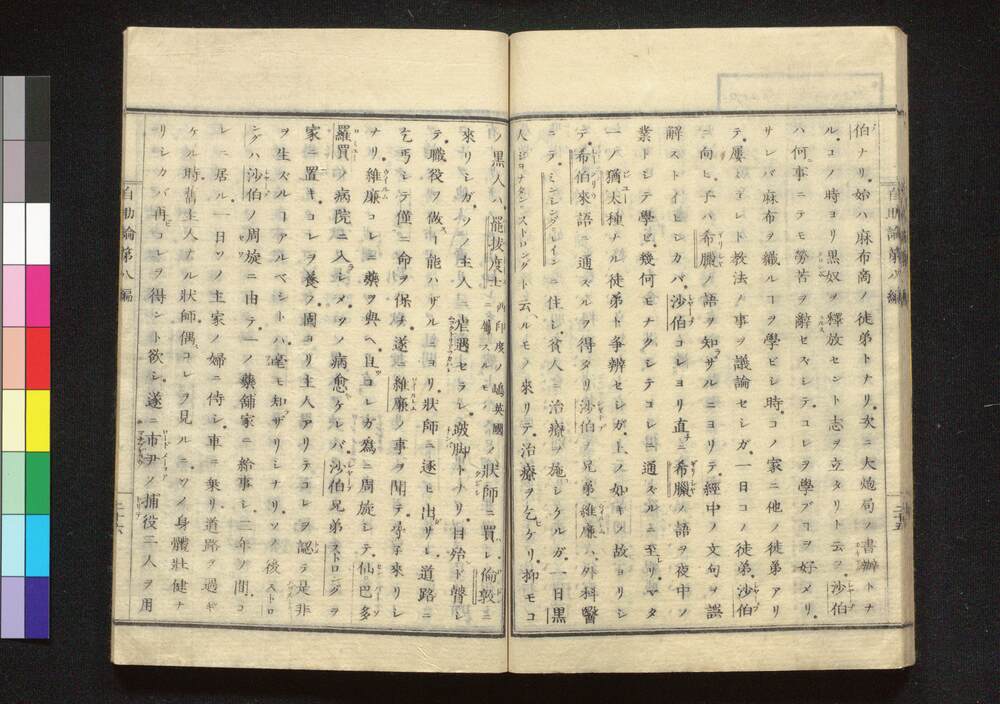 伯ナリ。始ハ麻布商ノ徒弟トナリ。次ニ大炮局ノ書辦トナ
ル。コノ時ヨリ黒奴ヲ釋放セント志ヲ立タリト云フ。沙伯
ハ何事ニテモ勞苦ヲ辭セズシテ。コレヲ學ブコヲ好メリ。
サレバ麻布ヲ織ルコヲ學ビシ時。コノ家ニ他ノ徒弟アリ
テ。屢シバレト教法ノ事ヲ議論セシガ。一日コノ徒弟。沙伯
ニ向ヒ。子ハ希臘ノ語ヲ知ザルニヨリテ。經中ノ文句ヲ誤
解ストイヒシカバ。沙伯コレヨリ直チニ希臘ノ語ヲ夜中ノ
業トシテ學ビ。幾何モナクシテコレニ通ズルニ至レリ。マタ
一ノ猶太種ナル徒弟ト爭辨セシガ。上ノ如キノ故ヨリシ
テ。希伯來語ニ通ズルヲ得タリ。沙伯ノ兄弟維廉ハ。外科醫
ニテ。ミンシングレインニ住シ。貧人ニ治療ヲ施シケルガ。一日黒
人ジヨナタン。ストロングト云ヘルモノ來リテ。治療ヲ乞ケリ。抑モコ
ノ黒人ハ。罷拔度士 西印度ノ嶋英國ニ屬スルモノ 狀師ニ買レ。倫敦ニ
來リシガ。ソノ主人ニ虐遇セラレ。跛脚トナリ。目殆ド瞽シ
テ。職役ヲ做ス能ハザルニヨリ。狀師ニ逐ヒ出サレ。道路ニ
乞丐シテ。僅ニ命ヲ保チ。遂ニ維廉ノ事ヲ聞テ。尋子來リシ
ナリ。維廉コレニ藥ヲ與ヘ。且ツコレガ爲ニ周旋シテ。仙巴多
羅買ノ病院ニ入シメ。ソノ病愈ケレバ。沙伯兄弟ストロングヲ
家ニ置キ。コレヲ養フ。固ヨリ主人アリテコレヲ認テ。是非
ヲ生ズルコアルベシトハ。毫モ知ザリシナリ。ソノ後ストロ
ングハ沙伯ノ周旋ニ由テ。一ノ藥舗家ニ給事シ。二年ノ間。コ
レニ居ル。一日ソノ主家ノ婦ニ侍シ。車ニ乗リ。道路ヲ過ギ
ケル時。舊主人ナル狀師。偶コレヲ見ルニ。ソノ身體壯健ナ
リシカバ。再ビコレヲ得ント欲シ。遂ニ市尹ノ捕役二人ヲ用
自助論第八編
二十六